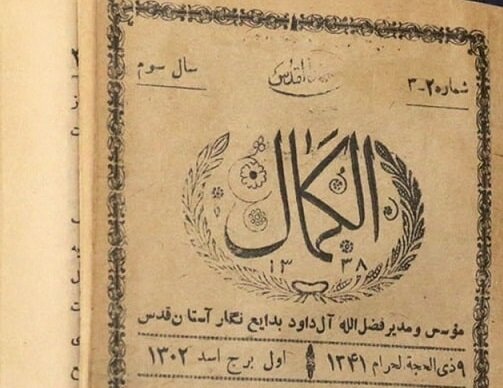 شماره ۲-۳
سال سوم
الکمال
۱۳۳۸
مؤسس و مدیر فضل الله آل داود بدایع نگار آستان قدس
۹ ذی الحجة الحرام ۱۳۴۱
اول برج اسد ۱۳۰۲